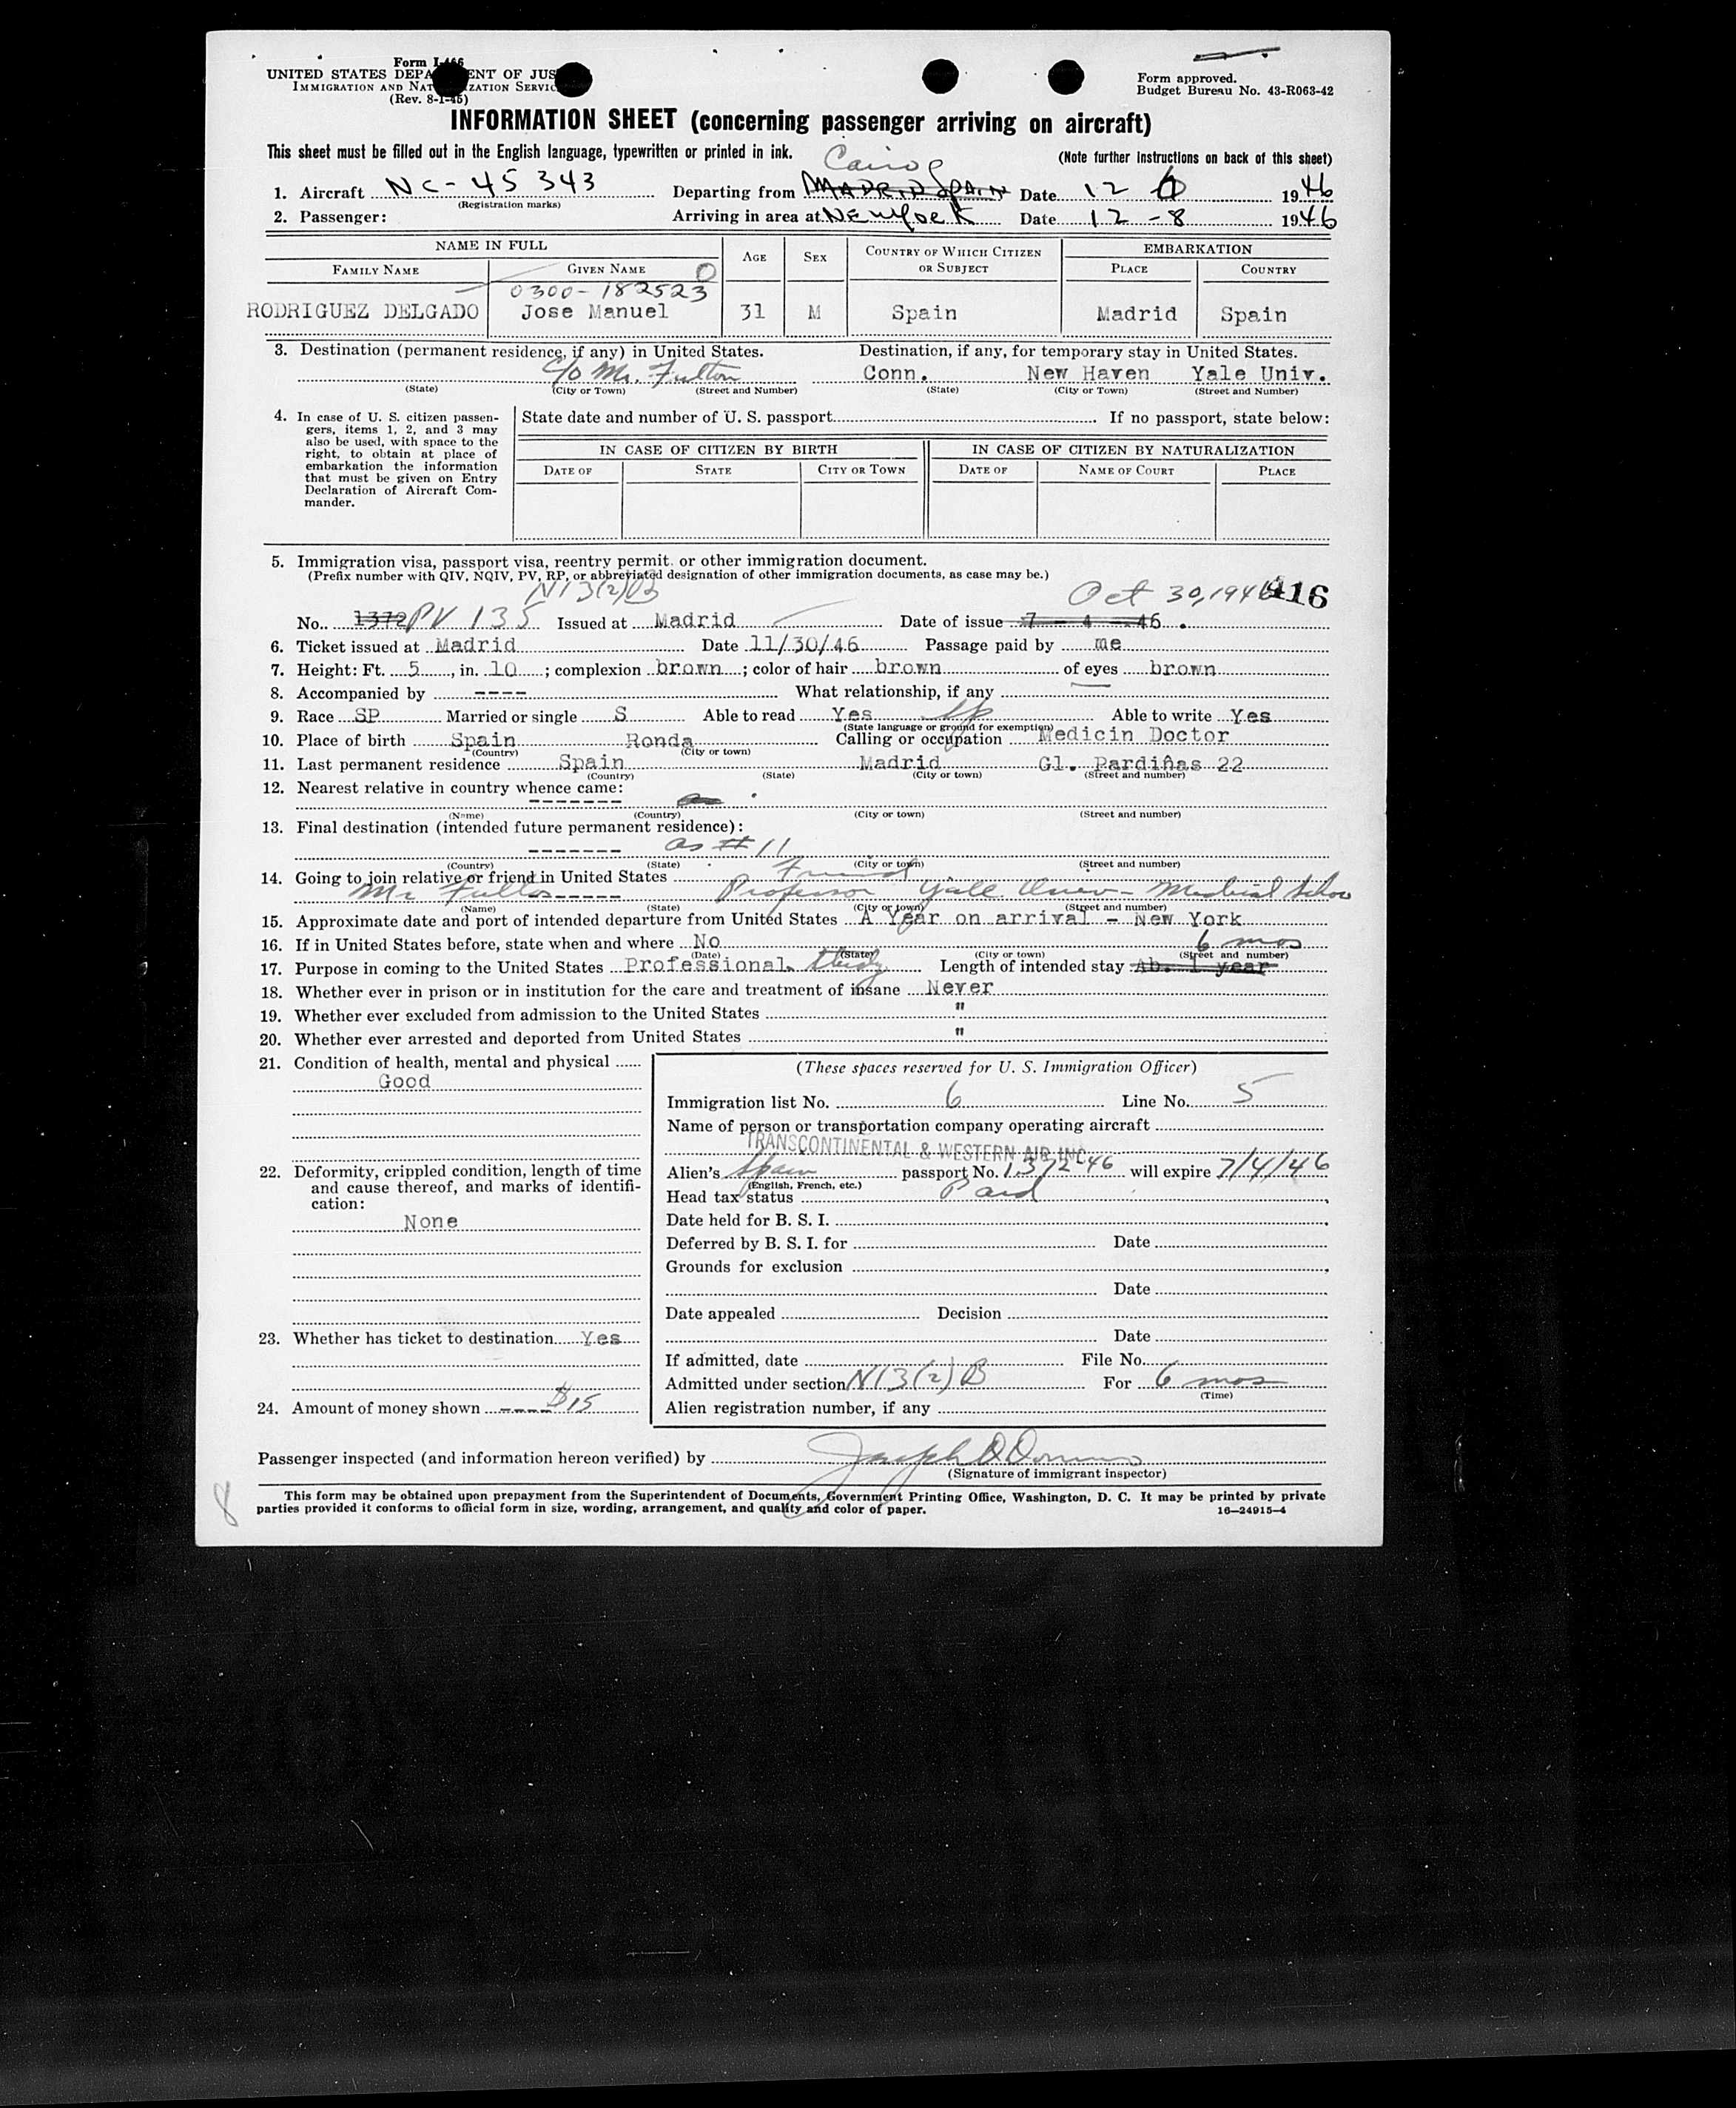 Form I-466
UNITED STATES DEPARTMENT OF JUS
IMMIGRATION AND NATURALIZATION SERVIC
(Rev. 8-1-45)
Form approved.
Budget Bureau No. 43-R063-42
INFORMATION SHEET (concerning passenger arriving on aircraft)
This sheet must be filled out in the English language, typewritten or printed in ink.
(Note further instructions on back of this sheet)
Cairo
1. Aircraft NC-45343 Departing from MADRID SPAIN Date 12 6 1946
(Registration marks)
2. Passenger: Arriving in area at New York Date 12-8 1946
NAME IN FULL AGE SEX COUNTRY OF WHICH CITIZEN OR SUBJECT EMBARKATION
FAMILY NAME GIVEN NAME PLACE COUNTRY
0300-182523
RODRIGUEZ DELGADO Jose Manuel 31 M Spain Madrid Spain
3. Destination (permanent residence, if any) in United States. Destination, if any, for temporary stay in United States.
c/o Mr. Fulton Conn. New Haven Yale Univ.
(State) (City or Town) (Street and Number) (State) (City or Town) (Street and Number)
4. In case of U. S. citizen passengers, items 1, 2, and 3 may also be used, with space to the right, to obtain at place of embarkation the information that must be given on Entry Declaration of Aircraft Commander.
State date and number of U. S. passport If no passport, state below:
IN CASE OF CITIZEN BY BIRTH IN CASE OF CITIZEN BY NATURALIZATION
DATE OF STATE CITY OR TOWN DATE OF NAME OF COURT PLACE
5. Immigration visa, passport visa, reentry permit or other immigration document.
(Prefix number with QIV, NQIV, PV, RP, or abbreviated designation of other immigration documents, as case may be.)
N13(2)B Oct 30, 1946 416
No. 1372 PV 135 Issued at Madrid Date of issue 7 - 4 - 46 .
6. Ticket issued at Madrid Date 11/30/46 Passage paid by me
7. Height: Ft. 5, in. 10; complexion brown; color of hair brown of eyes brown
8. Accompanied by ---- What relationship, if any
9. Race SP Married or single S Able to read Yes Sp Able to write Yes
(State language or ground for exemption)
10. Place of birth Spain Ronda Calling or occupation Medicin Doctor
(Country) (City or town)
11. Last permanent residence Spain Madrid Gl. Pardiñas 22
(Country) (State) (City or town) (Street and number)
12. Nearest relative in country whence came:
-------
(Name) (Country) (City or town) (Street and number)
13. Final destination (intended future permanent residence):
------- as #11
(Country) (State) (City or town) (Street and number)
14. Going to join relative or friend in United States Friend
Mr Fulton ----- Professor Yale Univ - Medical School
(Name) (State) (City or town) (Street and number)
15. Approximate date and port of intended departure from United States A Year on arrival - New York
16. If in United States before, state when and where No 6 mos
(Date) (State) (City or town) (Street and number)
17. Purpose in coming to the United States Professional. Study Length of intended stay Ab. 1 year
18. Whether ever in prison or in institution for the care and treatment of insane Never
19. Whether ever excluded from admission to the United States "
20. Whether ever arrested and deported from United States "
21. Condition of health, mental and physical
Good
22. Deformity, crippled condition, length of time and cause thereof, and marks of identification:
None
23. Whether has ticket to destination Yes
24. Amount of money shown ---- $15
(These spaces reserved for U. S. Immigration Officer)
Immigration list No. 6 Line No. 5
Name of person or transportation company operating aircraft
TRANSCONTINENTAL & WESTERN AIR INC.
Alien's Spain passport No. 1372-46 will expire 7/4/46
(English, French, etc.)
Head tax status Paid
Date held for B. S. I.
Deferred by B. S. I. for Date
Grounds for exclusion
Date
Date appealed Decision
Date
If admitted, date File No.
Admitted under section N13(2)B For 6 mos
(Time)
Alien registration number, if any
Passenger inspected (and information hereon verified) by
(Signature of immigrant inspector)
8
This form may be obtained upon prepayment from the Superintendent of Documents, Government Printing Office, Washington, D. C. It may be printed by private
parties provided it conforms to official form in size, wording, arrangement, and quality and color of paper. 16-24915-4